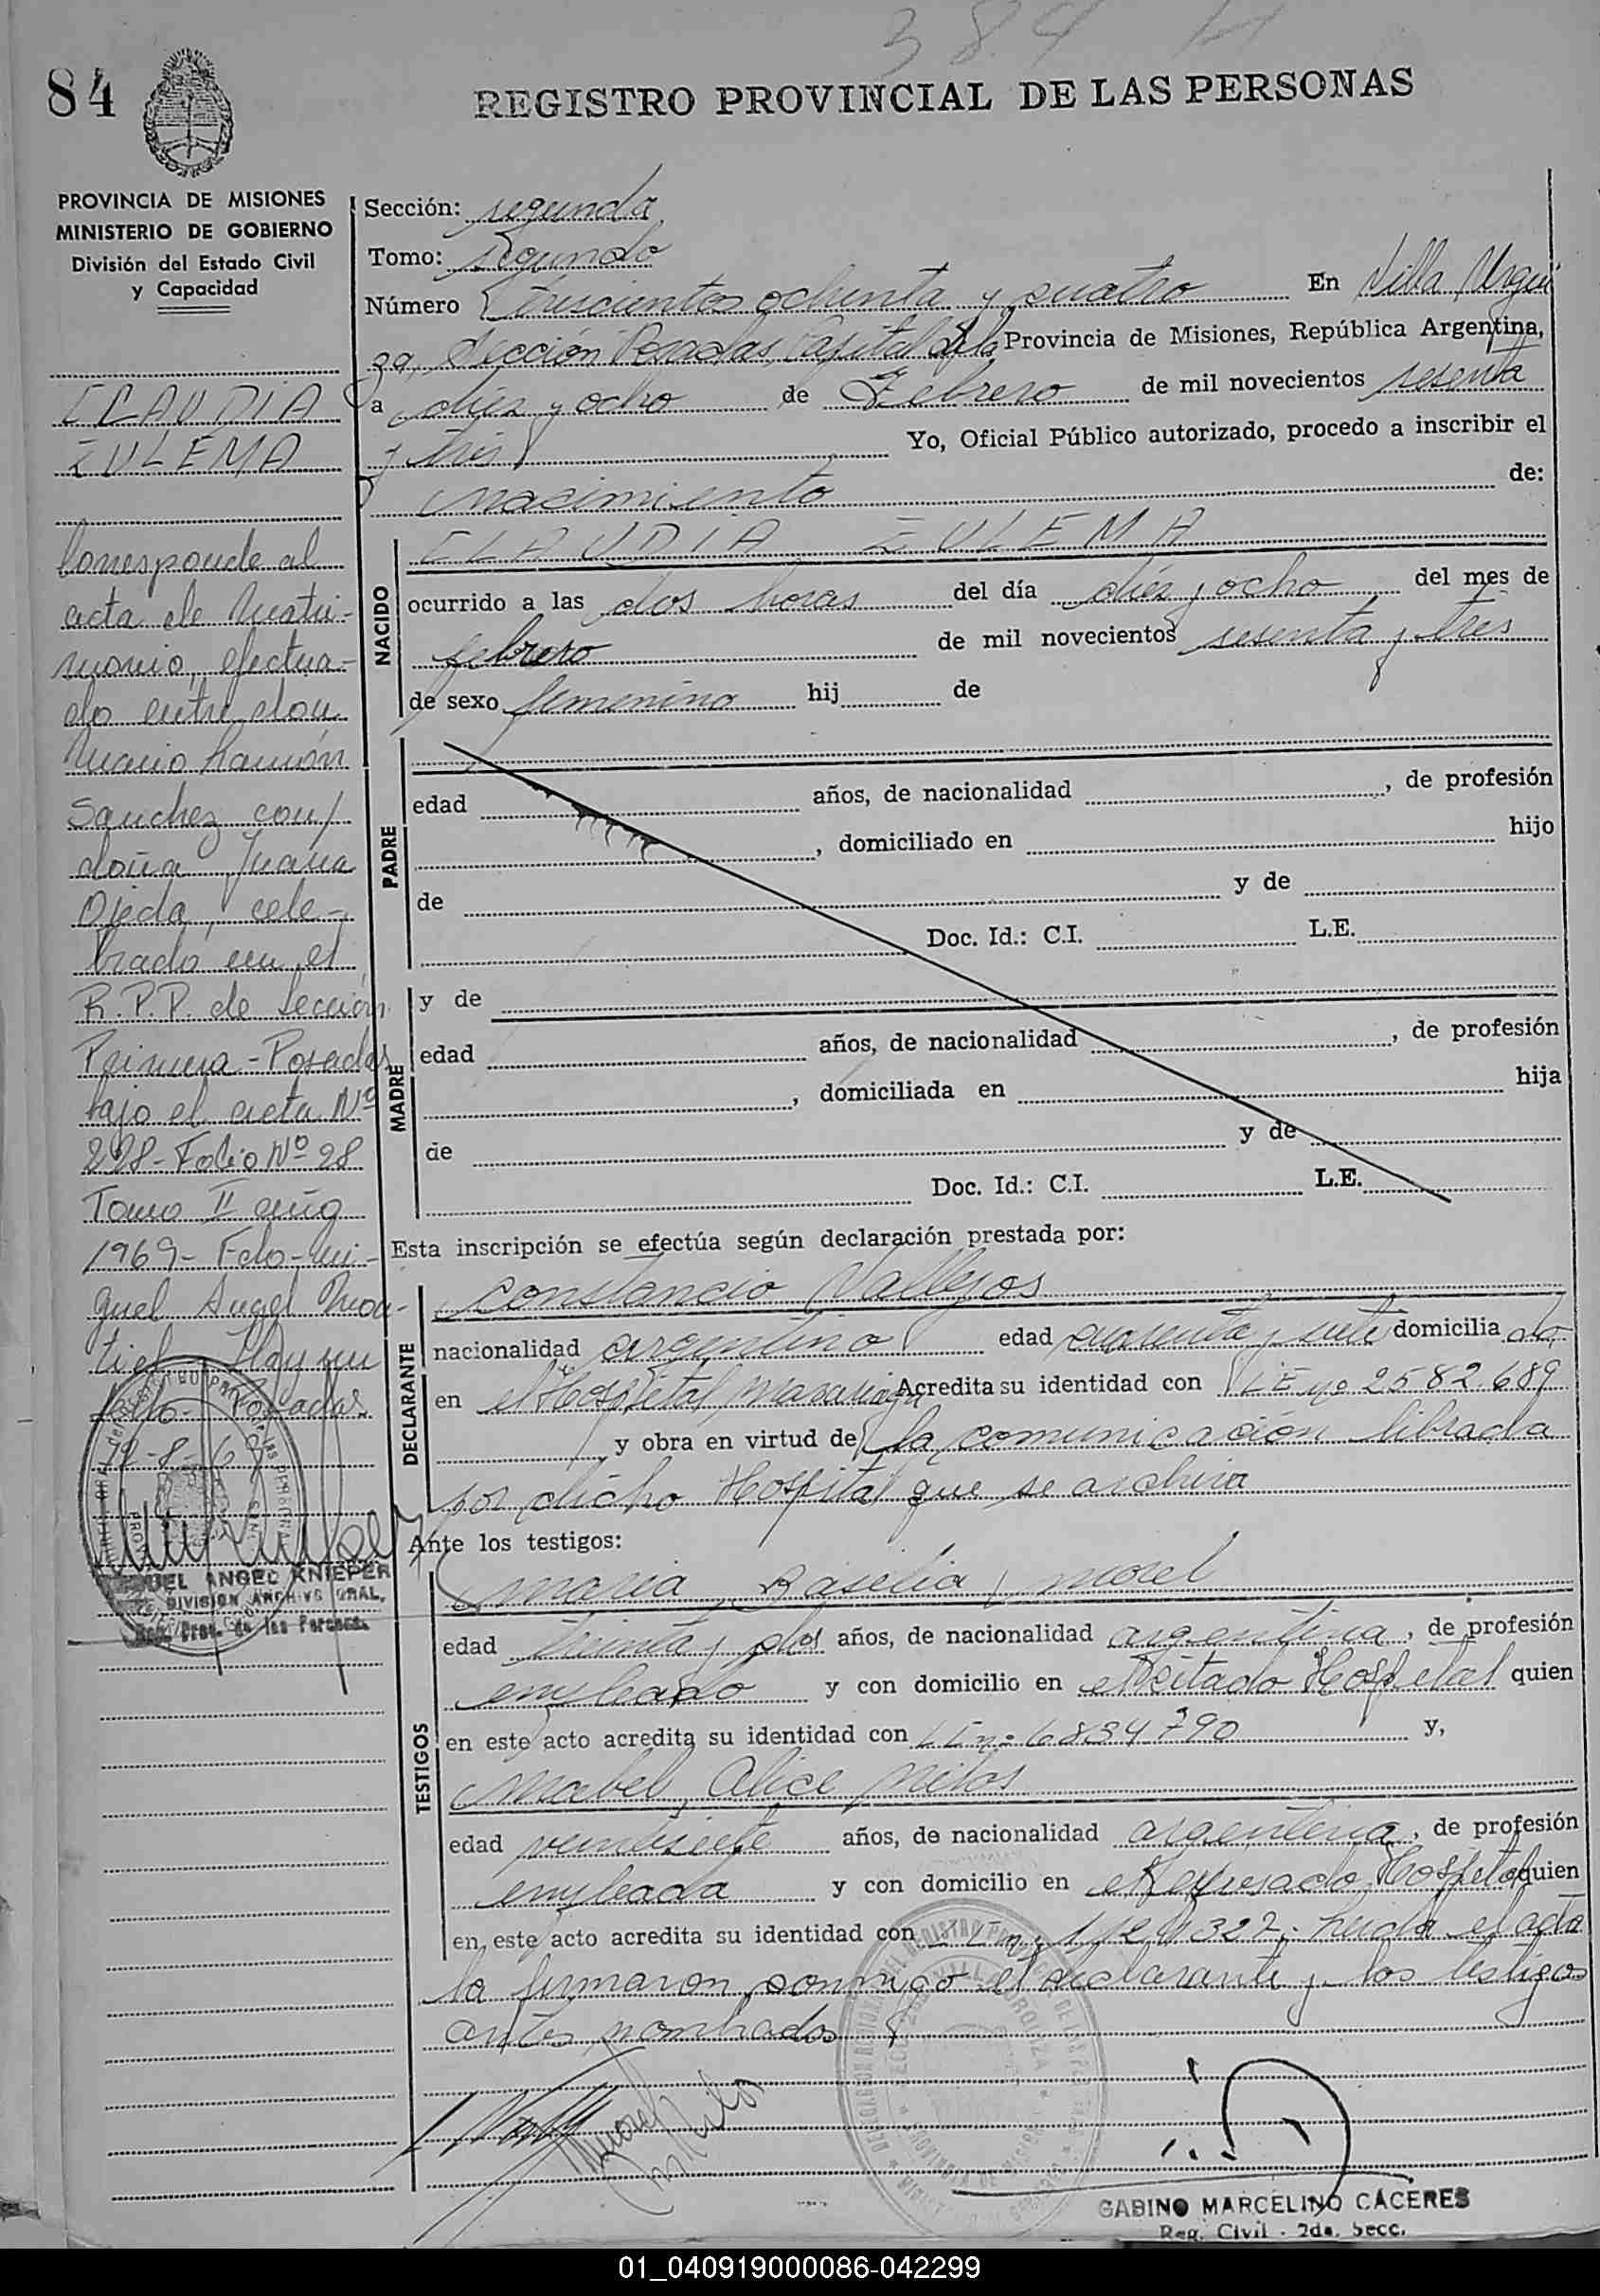 384
84
REGISTRO PROVINCIAL DE LAS PERSONAS
PROVINCIA DE MISIONES
MINISTERIO DE GOBIERNO
División del Estado Civil
y Capacidad
CLAUDIA
ZULEMA
Corresponde al
acta de Matri-
monio, efectua-
do entre don
Mario Ramón
Sanchez con/
doña Juana
Ojeda, cele-
brado en el
R.P.P. de Sección
Primera - Posadas
bajo el acta Nº
228 - Folio Nº 28
Tomo II año
1969 - Fdo - Mi-
guel Angel
Posadas
MIGUEL ANGEL KNIEPER
DIVISION ARCHIVO GRAL.
Reg. Prov. de las Personas.
Sección: segunda
Tomo: segundo
Número trescientos ochenta y cuatro En Villa Urqui
za, Sección Posadas, Capital de la Provincia de Misiones, República Argentina,
a diez y ocho de Febrero de mil novecientos sesenta
y tres Yo, Oficial Público autorizado, procedo a inscribir el
nacimiento de:
NACIDO
CLAUDIA ZULEMA
ocurrido a las dos horas del día diez y ocho del mes de
febrero de mil novecientos sesenta y tres
de sexo femenino hij de
PADRE
edad años, de nacionalidad , de profesión
, domiciliado en hijo
de y de
Doc. Id.: C.I. L.E.
MADRE
y de
edad años, de nacionalidad , de profesión
, domiciliada en hija
de y de
Doc. Id.: C.I. L.E.
Esta inscripción se efectúa según declaración prestada por:
DECLARANTE
Constancio Vallejos
nacionalidad argentino edad cuarenta y siete domicilia do
en el Hospital Madariaga Acredita su identidad con L.E. nº 2582689
y obra en virtud de la comunicación librada
por dicho Hospital que se archiva
Ante los testigos:
TESTIGOS
Maria Basilia Morel
edad treinta y dos años, de nacionalidad argentina, de profesión
empleado y con domicilio en el citado Hospital quien
en este acto acredita su identidad con nº 6834790 y,
Mabel Alice Mitos
edad veintisiete años, de nacionalidad argentina, de profesión
empleada y con domicilio en el expresado Hospital quien
en este acto acredita su identidad con leida el acta
la firmaron conmigo el declarante y los testigos
antes nombrados
GABINO MARCELINO CACERES
Reg. Civil - 2da. Secc.
01_040919000086-042299